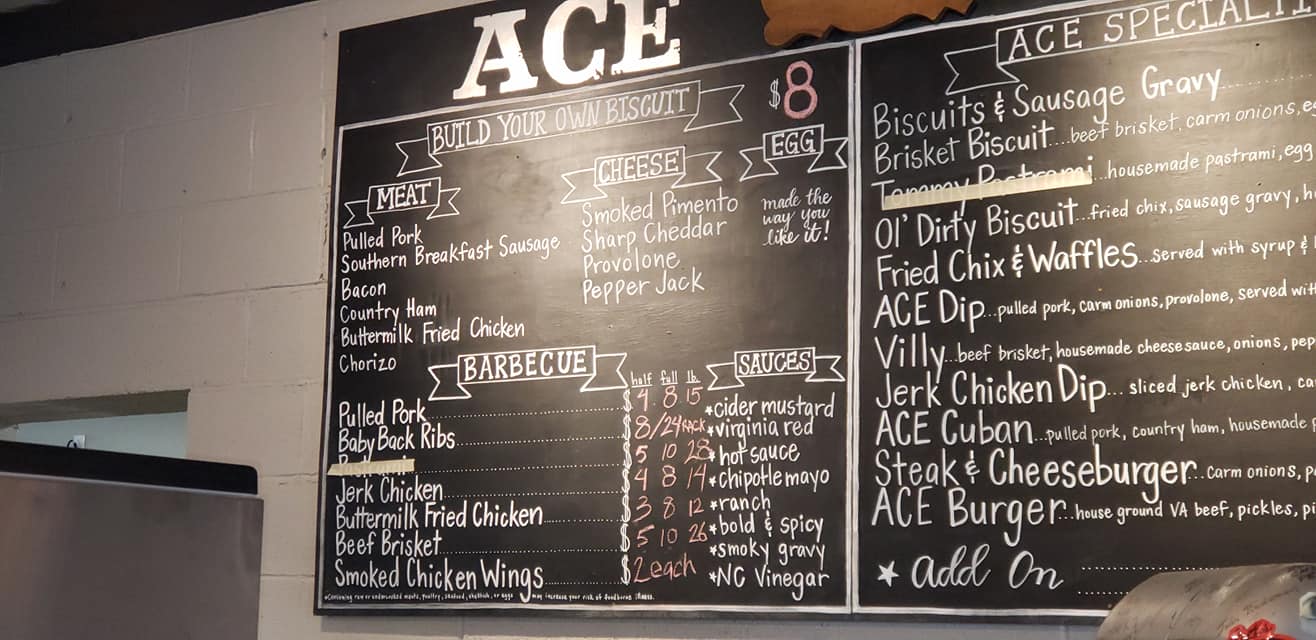 ACE
BUILD YOUR OWN BISCUIT
$8
MEAT
Pulled Pork
Southern Breakfast Sausage
Bacon
Country Ham
Buttermilk Fried Chicken
Chorizo
CHEESE
Smoked Pimento
Sharp Cheddar
Provolone
Pepper Jack
EGG
made the
way you
like it!
BARBECUE
half full lb.
Pulled Pork $4 8 15
Baby Back Ribs $8/24 RACK
$5 10 28
Jerk Chicken $4 8 14
Buttermilk Fried Chicken $3 8 12
Beef Brisket $5 10 26
Smoked Chicken Wings $2 each
SAUCES
*cider mustard
*virginia red
*hot sauce
*chipotle mayo
*ranch
*bold & spicy
*smoky gravy
*NC Vinegar
*Consuming raw or undercooked meats, poultry, seafood, shellfish, or eggs may increase your risk of foodborne illness.
ACE SPECIALTI
Biscuits & Sausage Gravy
Brisket Biscuit....beef brisket, carm onions, e
Tommy Pastrami...housemade pastrami, egg
Ol' Dirty Biscuit...fried chix, sausage gravy, h
Fried Chix & Waffles...served with syrup &
ACE Dip...pulled pork, carm onions, provolone, served wit
Villy...beef brisket, housemade cheese sauce, onions, pep
Jerk Chicken Dip... sliced jerk chicken, ca
ACE Cuban...pulled pork, country ham, housemade p
Steak & Cheeseburger...carm onions, p
ACE Burger...house ground VA beef, pickles, pi
* add On